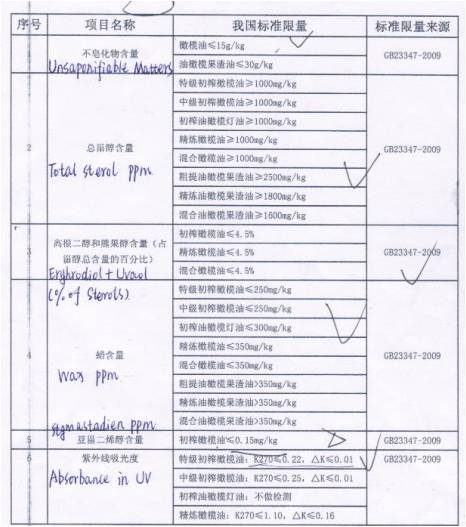 序号 项目名称 我国标准限量 标准限量来源
不皂化物含量
Unsaponifiable Matters
橄榄油≤15g/kg
油橄榄果渣油≤30g/kg
GB23347-2009
2
总甾醇含量
Total sterol ppm
特级初榨橄榄油≥1000mg/kg
中级初榨橄榄油≥1000mg/kg
初榨油橄榄灯油≥1000mg/kg
精炼橄榄油≥1000mg/kg
混合橄榄油≥1000mg/kg
粗提油橄榄果渣油≥2500mg/kg
精炼油橄榄果渣油≥1800mg/kg
混合油橄榄果渣油≥1600mg/kg
GB23347-2009
3
高根二醇和熊果醇含量（占
甾醇总含量的百分比）
Erythrodiol + Uvaol
(% of Sterols)
初榨橄榄油≤4.5%
精炼橄榄油≤4.5%
混合橄榄油≤4.5%
GB23347-2009
4
蜡含量
Wax ppm
特级初榨橄榄油≤250mg/kg
中级初榨橄榄油≤250mg/kg
初榨油橄榄灯油≤300mg/kg
精炼橄榄油≤350mg/kg
混合橄榄油≤350mg/kg
粗提油橄榄果渣油>350mg/kg
精炼油橄榄果渣油>350mg/kg
混合油橄榄果渣油>350mg/kg
GB23347-2009
stgmastadien ppm
5 豆甾二烯醇含量 初榨橄榄油≤0.15mg/kg GB23347-2009
6
紫外线吸光度
Absorbance in UV
特级初榨橄榄油：K270≤0.22，△K≤0.01
中级初榨橄榄油：K270≤0.25，△K≤0.01
初榨油橄榄灯油：不做检测
精炼橄榄油：K270≤1.10，△K≤0.16
GB23347-2009